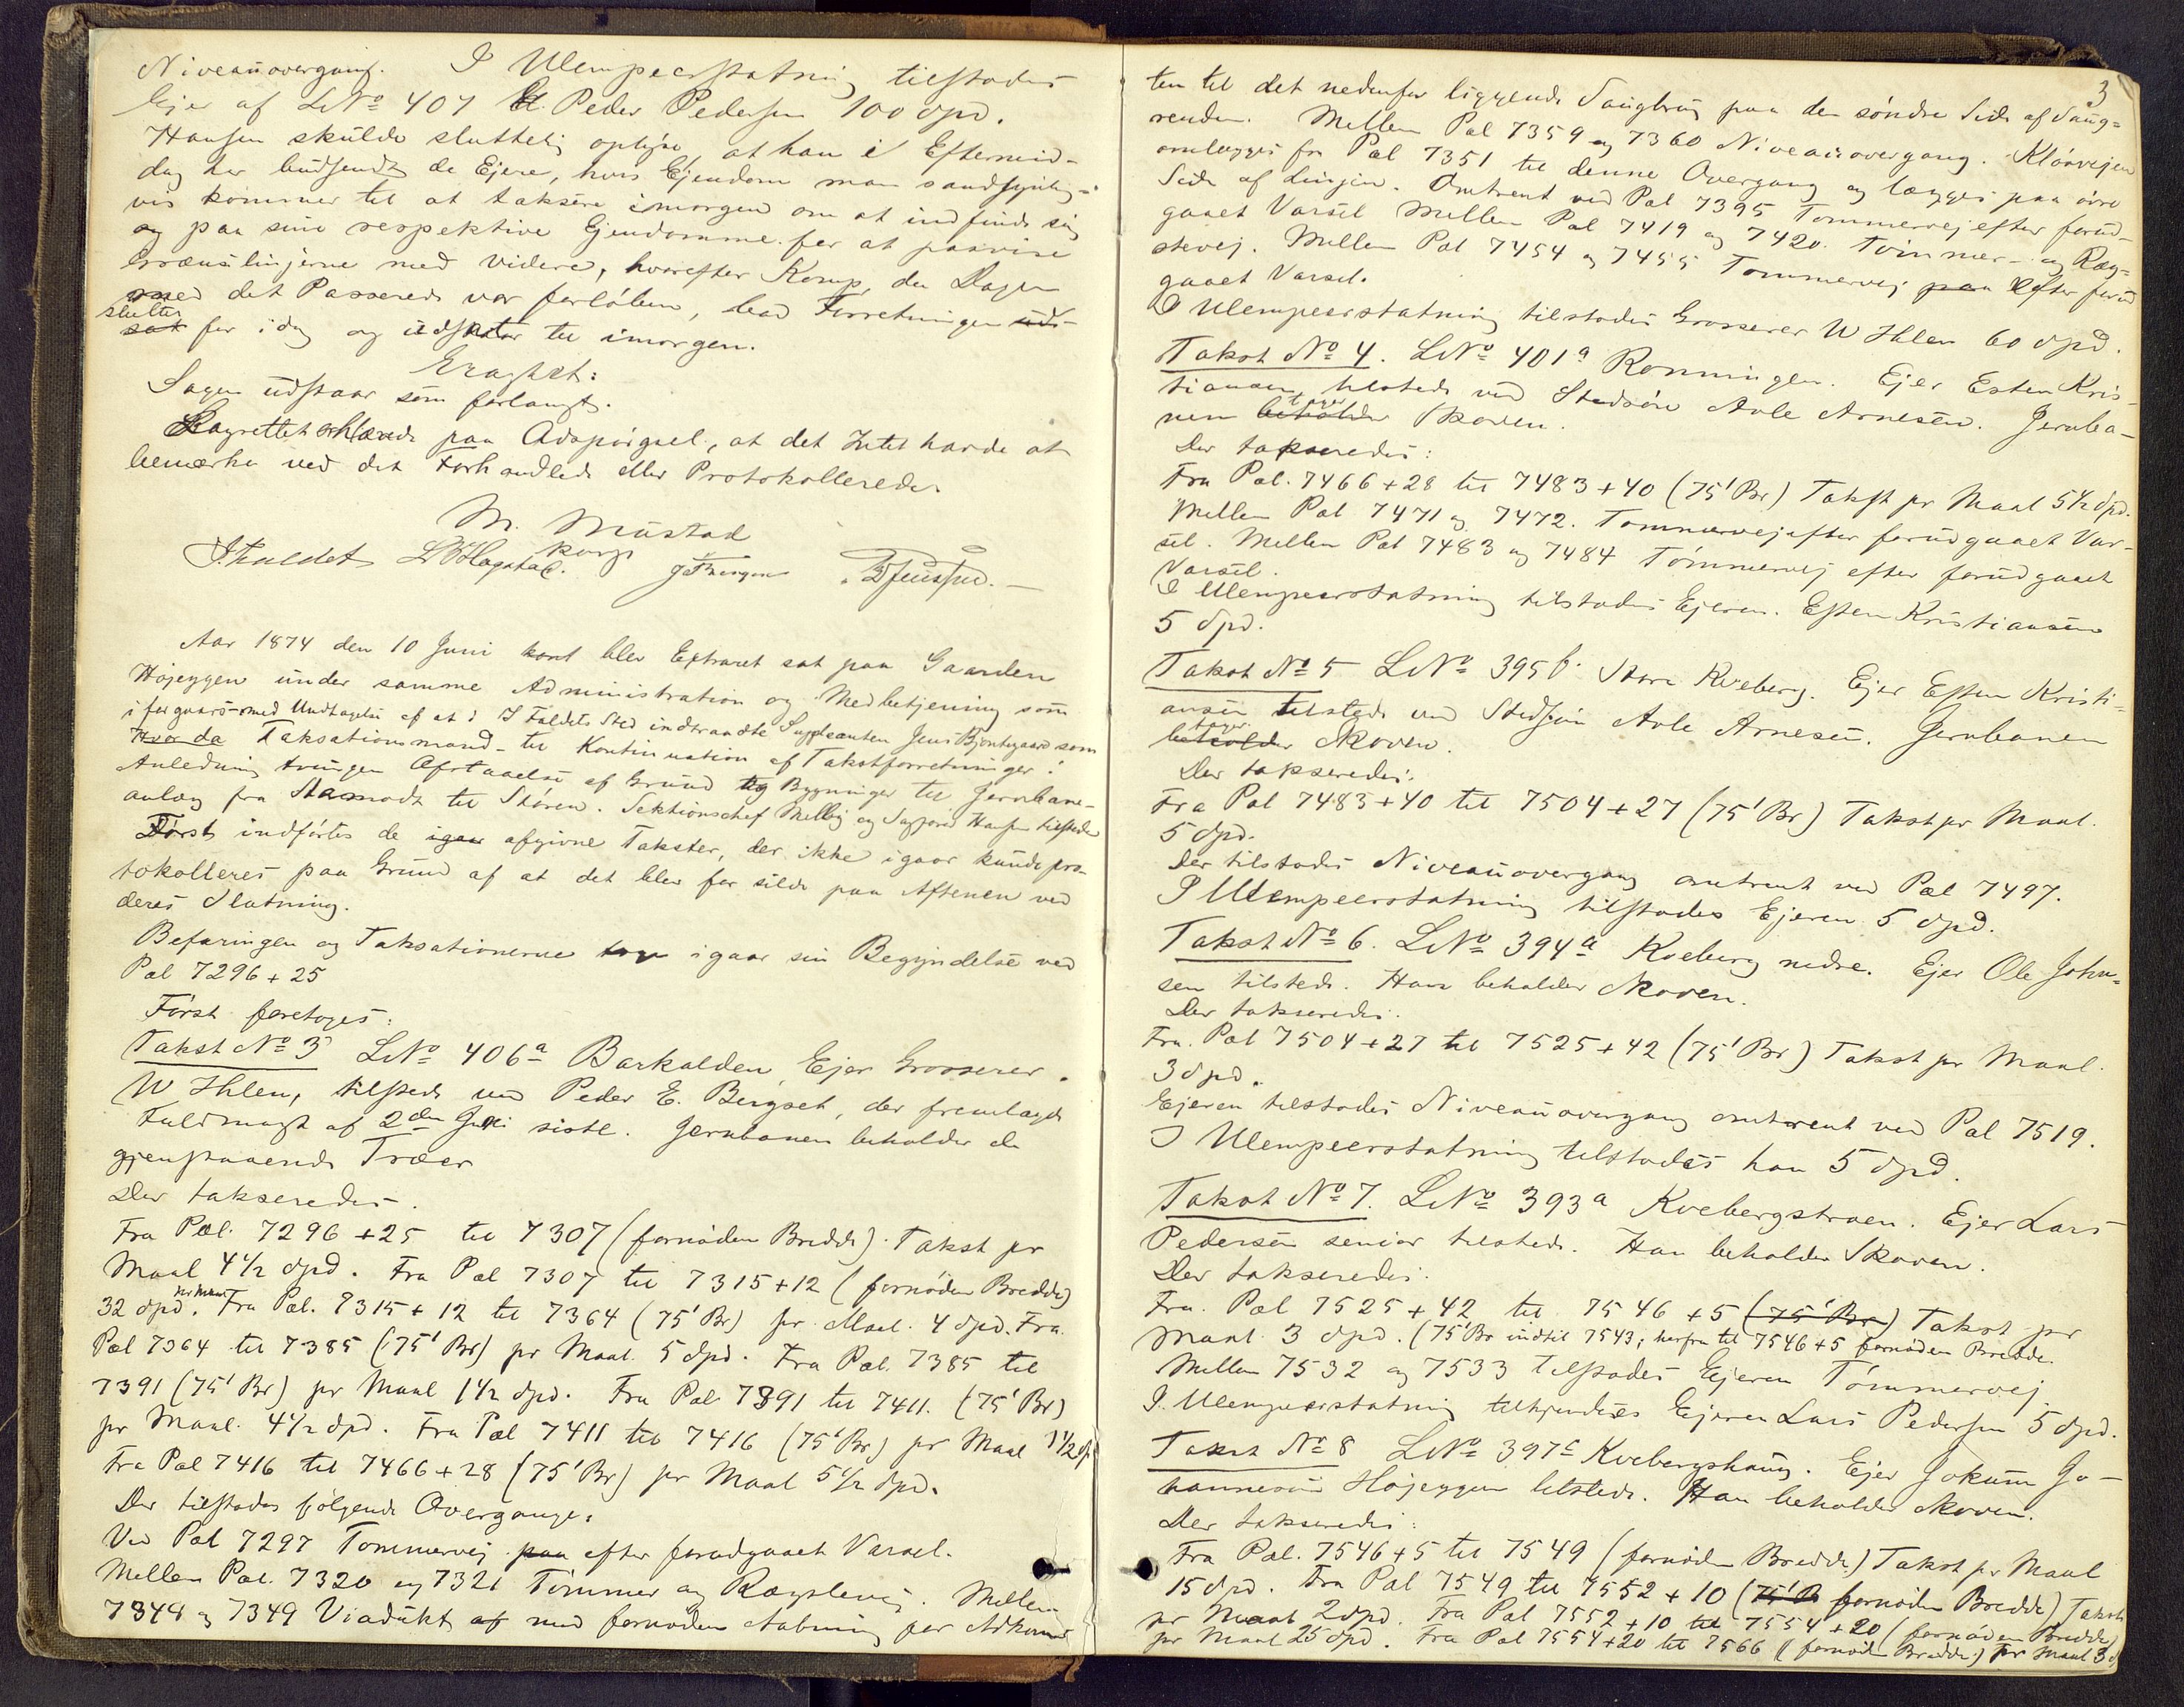 Niveauovergang. I Ulempeerstatning tilstodes
Ejer af LNo 407 Peder Pedersen 100 Spd.
Hansen skulde sluttelig oplyse at han i Eftermid-
dag har budsendt de Ejere, hvis Ejendom man sandsynlig-
vis kommer til at taksere imorgen om at indfinde sig
og paa sine respektive Ejendomme for at paavise
Grændselinjerne med videre, hvorefter Korup, da Dagen
med det Passerede var forløben, bad Forretningen
sluttet for idag og udsat til imorgen.
Eragtet:
Sagen udstaar som forlangt.
Lagrettet erklærede paa Adspørgsel, at det Intet havde at
bemærke ved det Forhandlede eller Protokollerede.
M. Mustad
Korup
Aar 1874 den 10 Juni blev Extraret sat paa Gaarden
Højeggen under samme Administration og Medbetjening som
igaar med Undtagelse af at i I Foldets Sted indtraadte Suppleanten Jens Bjontegaard som
Taksationsmand - til Kontinuation af Takstforretninger i
Anledning tvungen Afstaaelse af Grund og Bygninger til Jernbane-
anlæg fra Aamodt til Støren. Sektionschef Melby og Sagfører Hansen tilstede
Først indførtes de igaar afgivne Takster, der ikke igaar kunde pro-
tokolleres paa Grund af at det blev for silde paa Aftenen ved
deres Slutning.
Befaringen og Taksationerne tog igaar sin Begyndelse ved
Pæl 7296 + 25
Først foretoges:
Takst No 3 LNo 406a Barkalden, Ejer Grosserer
W Ihlen, tilstede ved Peder E. Bergset, der fremlagde
Fuldmagt af 2den Juni sidstl. Jernbanen beholder de
gjenstaaende Træer
Der takseredes.
Fra Pæl. 7296 + 25 til 7307 (fornøden Bredde) Takst pr
Maal 4 1/2 Spd. Fra Pæl 7307 til 7315 + 12 (fornøden Bredde)
32 Spd pr Maal. Fra Pæl. 7315 + 12 til 7364 (75' Br) pr. Maal. 4 Spd. Fra
Pæl 7364 til 7385 (75' Br) pr Maal 5 Spd. Fra Pæl. 7385 til
7391 (75' Br) pr Maal 1 1/2 Spd. Fra Pæl 7391 til 7411. (75' Br)
pr Maal. 4 1/2 Spd. Fra Pæl 7411 til 7416 (75' Br) pr Maal 1 1/2 Sp
Fra Pæl 7416 til 7466 + 28 (75' Br) pr Maal 5 1/2 Spd.
Der tilstodes følgende Overgange:
Ved Pæl 7297 Tømmervej paa efter forudgaaet Varsel.
Mellem Pæl. 7320 og 7321 Tømmer og Ragstevej. Mellem
7348 og 7349 Viadukt af med fornøden Aabning for Adkoms
3
ten til det nedenfor liggende Saugbrug paa den søndre Side af Saug-
renden. Mellem Pæl 7359 og 7360 Niveauovergang. Kløvvejen
omlægges fra Pæl 7351 til denne Overgang og lægges paa øvre
Side af Linjen. Omtrent ved Pæl 7395 Tømmervej efter forud-
gaaet Varsel Mellem Pæl 7419 og 7420. Tømmer- og Rag-
stevej. Mellem Pæl 7454 og 7455 Tømmervej paa Efter forud
gaaet Varsel.
I Ulempeerstatning tilstodes Grosserer W Ihlen 60 Spd.
Takst No 4. LNo 401a Rønningen. Ejer Esten Kris-
tiansen tilstede ved Stedsøn Avle Arnesen. Jernba-
nen beholder tager Skoven.
Der takseredes:
Fra Pæl. 7466 + 28 til 7483 + 40 (75' Br) Takst pr Maal 5 1/2 Spd.
Mellem Pæl 7471 og 7472. Tømmervej efter forudgaaet Var-
sel. Mellem Pæl 7483 og 7484 Tømmervej efter forudgaaet
Varsel.
I Ulempeerstatning tilstodes Ejeren Esten Kristiansen
5 Spd.
Takst No 5 LNo 395b Store Kveberg. Ejer Esten Kristi-
ansen tilstede ved Stedsøn Avle Arnesen. Jernbanen
beholder tager Skoven.
Der takseredes:
Fra Pæl 7483 + 40 til 7504 + 27 (75' Br) Takst pr Maal.
5 Spd.
Der tilstodes Niveauovergang omtrent ved Pæl 7497.
I Ulempeerstatning tilstodes Ejeren 5 Spd.
Takst No 6. LNo 394a Kveberg nedre. Ejer Ole John-
sen tilstede. Han beholder Skoven.
Der takseredes.
Fra. Pæl 7504 + 27 til 7525 + 42 (75' Br) Takst pr Maal.
3 Spd.
Ejeren tilstodes Niveauovergang omtrent ved Pæl 7519.
I Ulempeerstatning tilstodes han 5 Spd.
Takst No 7. LNo 393a Kvebergstrøen. Ejer Lars
Pedersen senior tilstede. Han beholder Skoven.
Der takseredes:
Fra. Pæl 7525 + 42 til 7546 + 5 (75' Br) Takst pr
Maal 3 Spd. (75' Br indtil 7543; herfra til 7546 + 5 fornøden Bredde.
Mellem 7532 og 7533 tilstodes Ejeren Tømmervej
I. Ulempeerstatning tilkjendtes Ejeren Lars Pedersen 5 Spd.
Takst No 8 LNo 397c Kvebergshaug. Ejer Jokum Jo-
hannesen Højeggen tilstede. Han beholder Skoven.
Der takseredes:
Fra Pæl. 7546 + 5 til 7549 (fornøden Bredde) Takst pr Maal
15 Spd. Fra Pæl 7549 til 7552 + 10 (75' B fornøden Bredde) Takst
pr Maal 2 Spd. Fra Pæl 7552 + 10 til 7554 + 20 (fornøden Bredde)
pr Maal 25 Spd. Fra Pæl 7554 + 20 til 7566 (fornøden Bredde) pr Maal 3